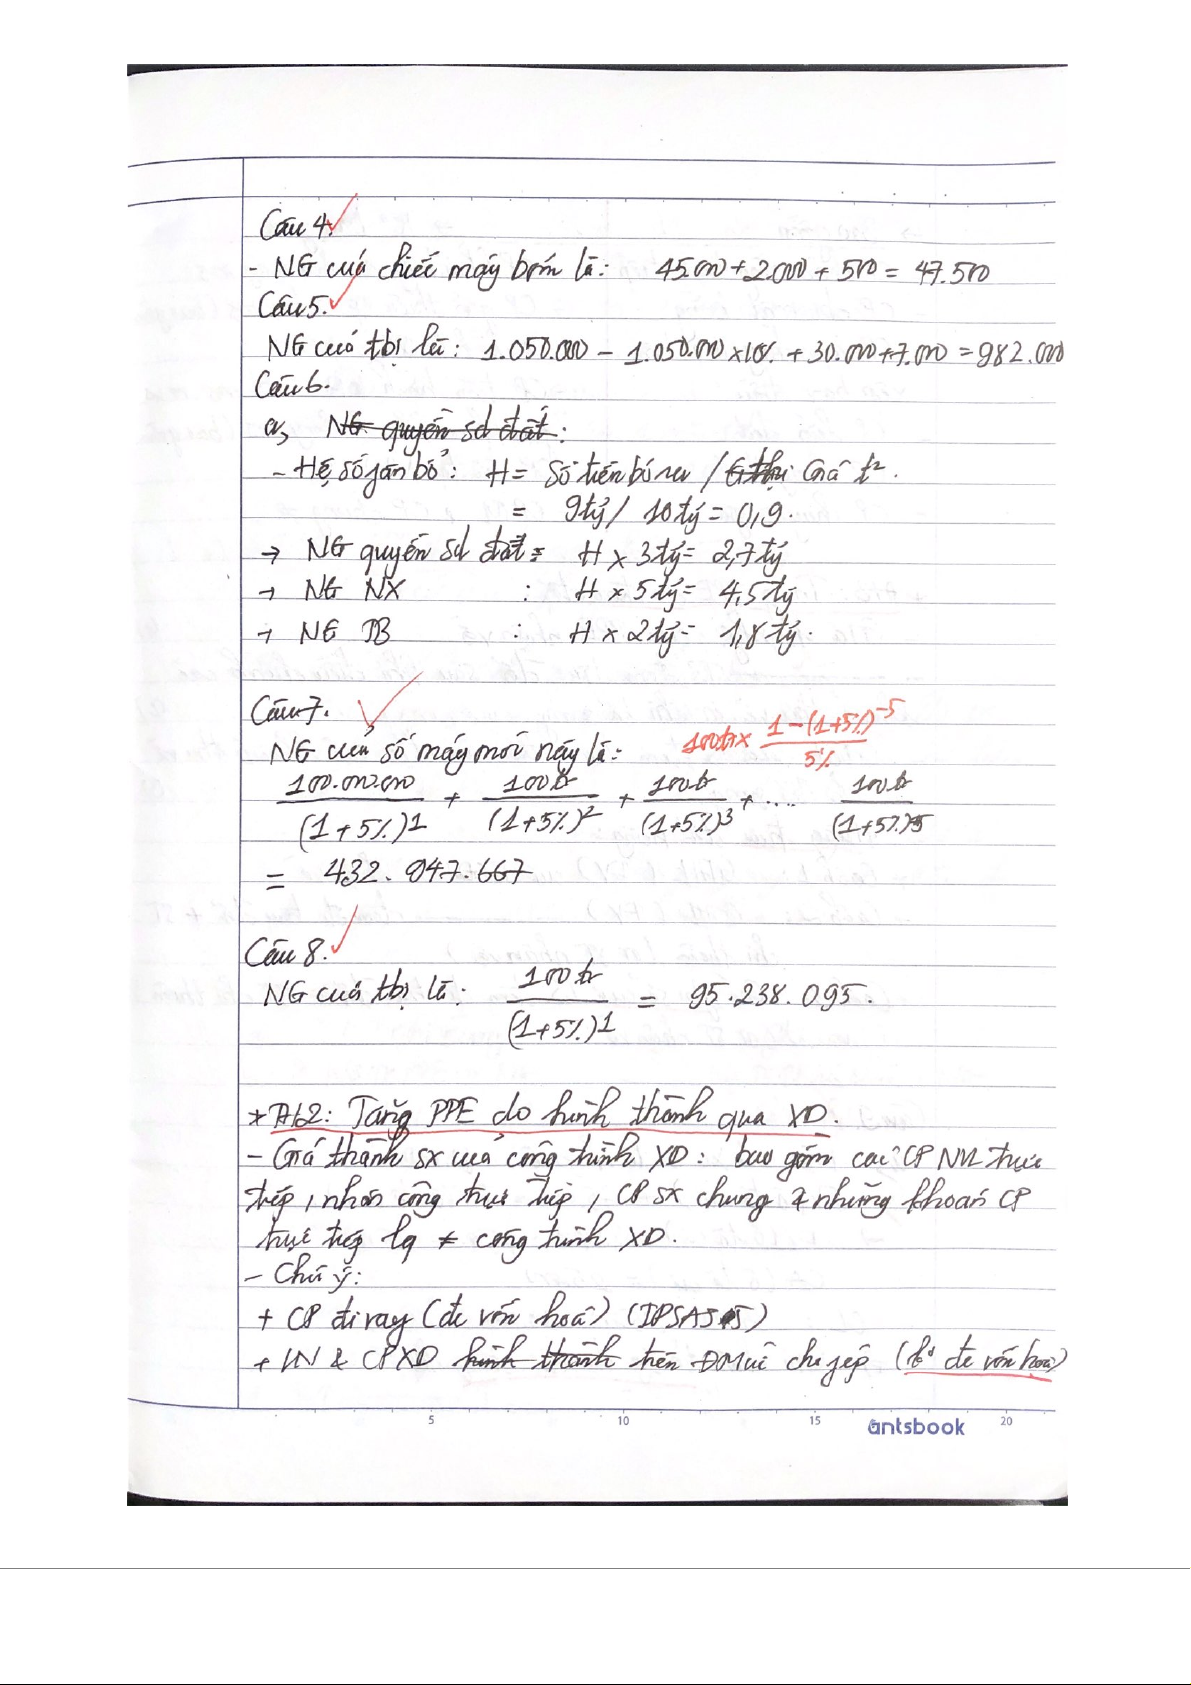 Câu 4.
- NG của chiếc máy bơm là: 45.000 + 2.000 + 500 = 47.500
Câu 5.
NG của tbị là: 1.050.000 - 1.050.000 x 10% + 30.000 + 7.000 = 982.000
Câu 6.
a, NG quyền sd đất:
- Hệ số phân bổ: H = Số tiền bỏ ra / Gthị Giá t²
= 9 tỷ / 10 tỷ = 0,9.
→ NG quyền sd đất = H x 3 tỷ = 2,7 tỷ
→ NG NX : H x 5 tỷ = 4,5 tỷ
→ NG TB : H x 2 tỷ = 1,8 tỷ.
Câu 7.
NG của số máy mới này là: 100tr x (1 - (1+5%)^-5) / 5%
100.000.000 / (1+5%)^1 + 100tr / (1+5%)^2 + 100tr / (1+5%)^3 + .... 100tr / (1+5%)^5
= 432.947.667
Câu 8.
NG của tbị là: 100tr / (1+5%)^1 = 95.238.095.
* TH2: Tăng PPE do hình thành qua XD.
- Giá thành sx của công trình XD: bao gồm các CP NVL trực
tiếp, nhân công trực tiếp, CP sx chung & những khoản CP
trực tiếp lq ≠ công trình XD.
- Chú ý:
+ CP đi vay (đc vốn hoá) (IPSAS 5)
+ LN & CPXD hình thành trên ĐMức cho phép (ko đc vốn hoá)
5 10 15 antsbook 20